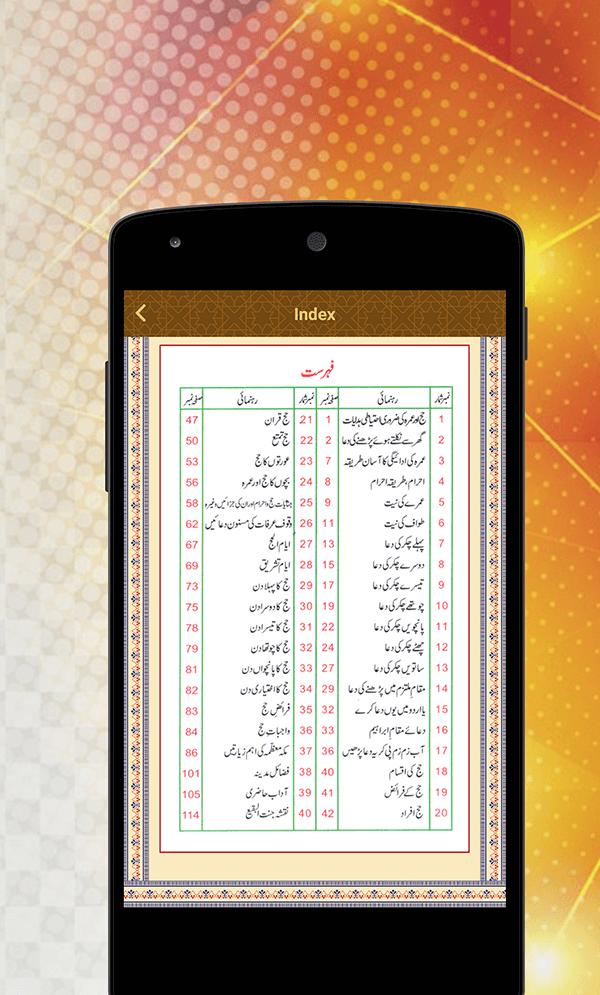 Index
فہرست
نمبر شمار رہنمائی صفحہ نمبر نمبر شمار رہنمائی صفحہ نمبر
1 حج اور عمرہ کی ضروری احتیاطی ہدایات 1 21 حج قران 47
2 گھر سے نکلتے ہوئے پڑھنے کی دعا 2 22 حج تمتع 50
3 عمرہ کی ادائیگی کا آسان طریقہ 7 23 عورتوں کا حج 53
4 احرام، طریقہ احرام 8 24 بچوں کا حج اور عمرہ 56
5 عمرے کی نیت 9 25 جنایات حج و احرام اور ان کی جزائیں وغیرہ 58
6 طواف کی نیت 11 26 وقوف عرفات کی مسنون دعائیں 62
7 پہلے چکر کی دعا 13 27 ایام الحج 67
8 دوسرے چکر کی دعا 15 28 ایام تشریق 69
9 تیسرے چکر کی دعا 17 29 حج کا پہلا دن 73
10 چوتھے چکر کی دعا 19 30 حج کا دوسرا دن 75
11 پانچویں چکر کی دعا 22 31 حج کا تیسرا دن 78
12 چھٹے چکر کی دعا 24 32 حج کا چوتھا دن 79
13 ساتویں چکر کی دعا 27 33 حج کا پانچواں دن 81
14 مقام ملتزم میں پڑھنے کی دعا 29 34 حج کا اختیاری دن 82
15 یا اردو میں یوں دعا کرے 32 35 فرائض حج 83
16 دعائے مقام ابراہیم 33 36 واجبات حج 84
17 آب زم زم پی کر یہ دعا پڑھیں 36 37 مکہ معظمہ کی اہم زیارتیں 86
18 حج کی اقسام 40 38 فضائل مدینہ 101
19 حج کے فرائض 41 39 آداب حاضری 105
20 حج افراد 42 40 نقشہ جنت البقیع 114